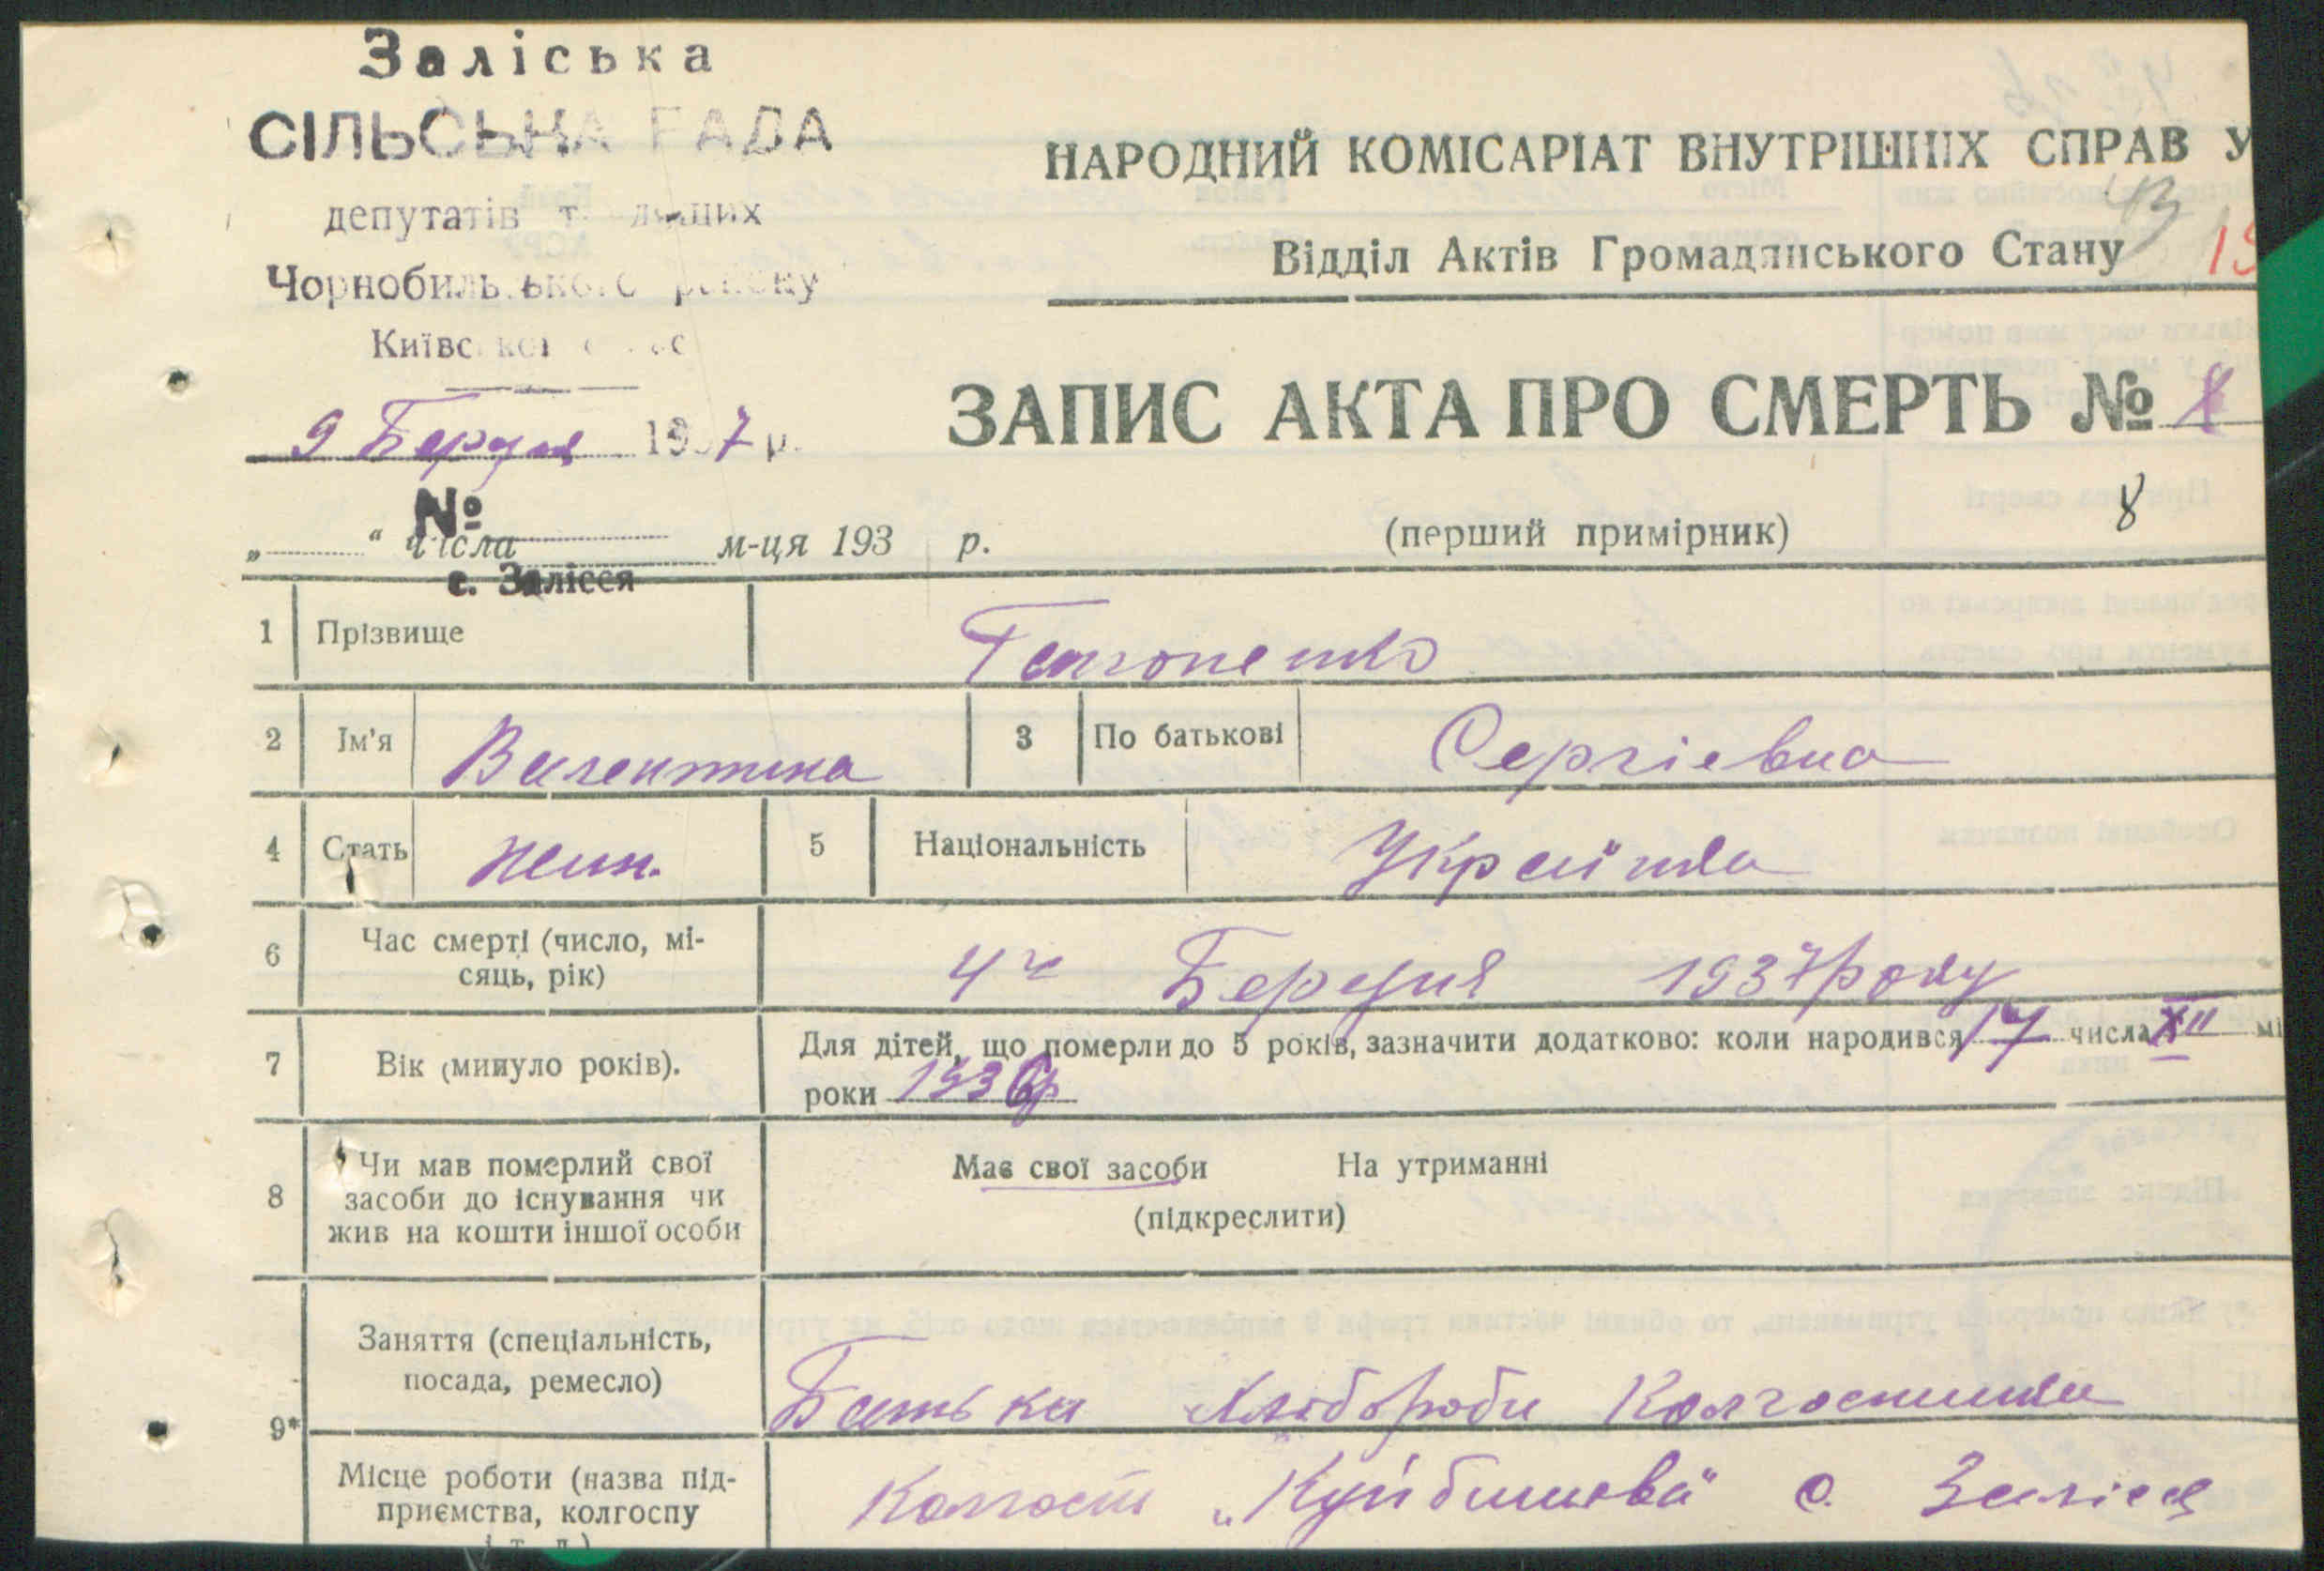 Заліська
СІЛЬСЬКА РАДА
депутатів трудящих
Чорнобильського району
Київської
9 Березня 1937 р.
№
„ “ числа м-ця 193 р.
с. Залісся
НАРОДНИЙ КОМІСАРІАТ ВНУТРІШНІХ СПРАВ У
Відділ Актів Громадянського Стану
ЗАПИС АКТА ПРО СМЕРТЬ № 8
(перший примірник) 8
1 Прізвище
2 Ім'я Валентина 3 По батькові Сергіевна
4 Стать жін. 5 Національність Українка
6 Час смерті (число, мі-
сяць, рік) 4 Березня 1937 року
7 Вік (минуло років). Для дітей, що померли до 5 років, зазначити додатково: коли народився 17 числа XII мі
роки 1936р
8 Чи мав померлий свої
засоби до існування чи
жив на кошти іншої особи
Має свої засоби На утриманні
(підкреслити)
9* Заняття (спеціальність,
посада, ремесло)
Батька Хлібороби Колгоспники
Місце роботи (назва під-
приємства, колгоспу
і т. д.)
Колгосп „Куйбишева" с. Залісся